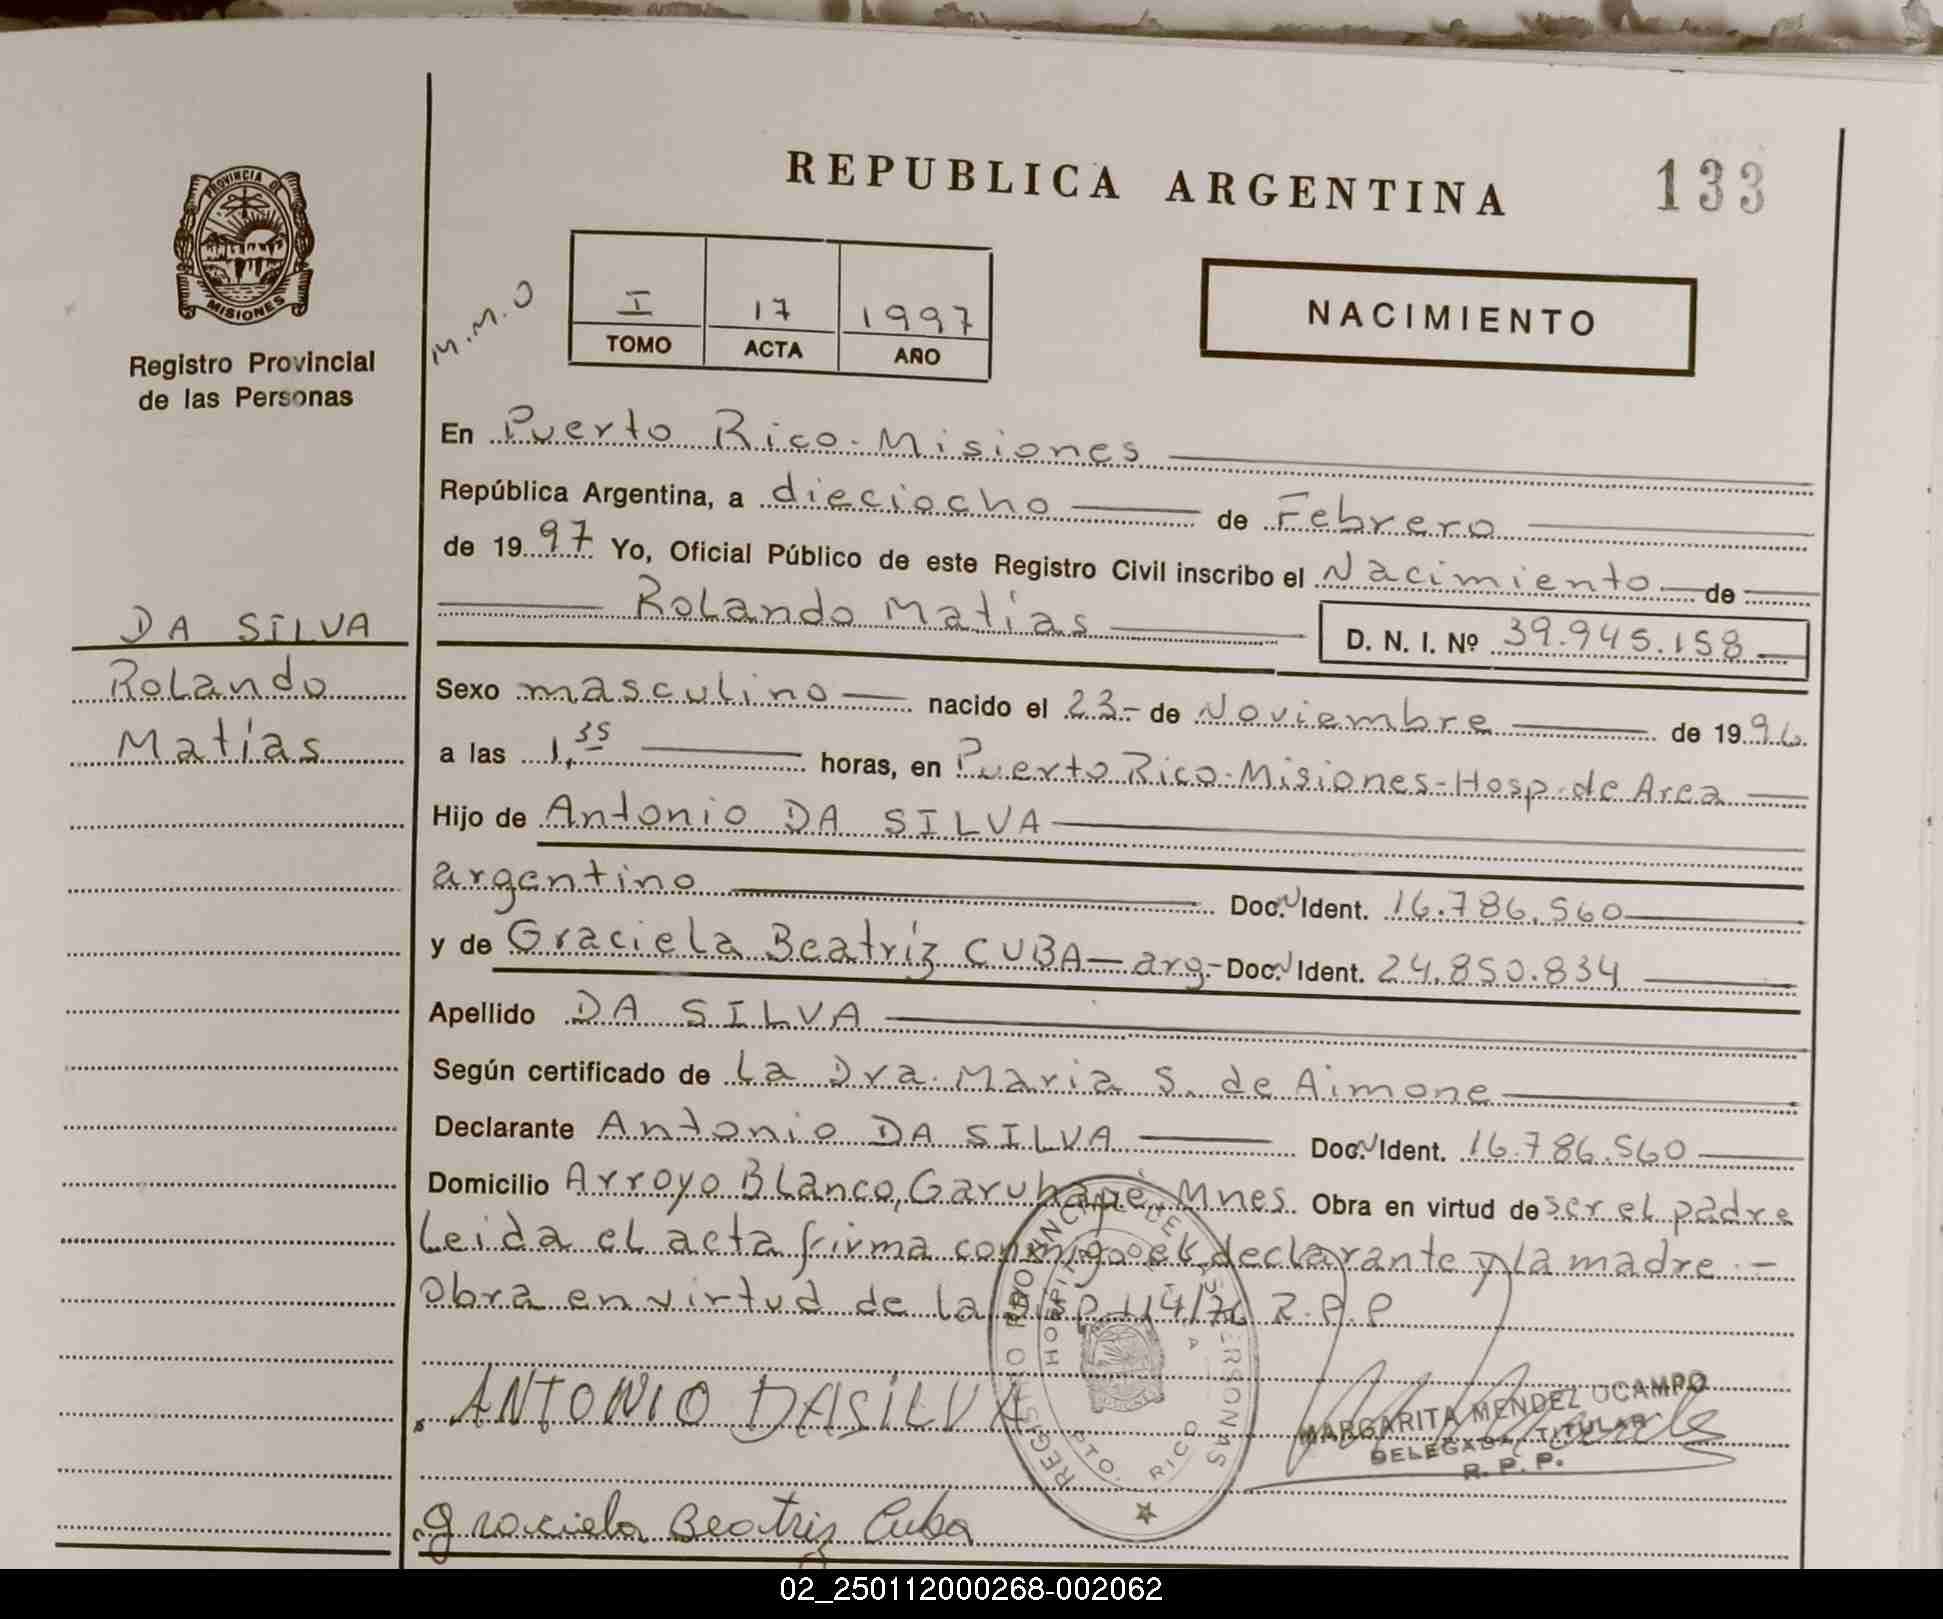 REPUBLICA ARGENTINA
133
PROVINCIA DE
MISIONES
Registro Provincial
de las Personas
M.M.O
I 17 1997
TOMO ACTA AÑO
NACIMIENTO
En Puerto Rico-Misiones
República Argentina, a dieciocho de Febrero
de 1997 Yo, Oficial Público de este Registro Civil inscribo el Nacimiento de
Rolando Matías D. N. I. Nº 39.945.158
DA SILVA
Rolando
Matías
Sexo masculino nacido el 23- de Noviembre de 1996
a las 1,35 horas, en Puerto Rico-Misiones-Hosp. de Area
Hijo de Antonio DA SILVA
argentino Doc. Ident. 16.786.560
y de Graciela Beatríz CUBA - arg- Doc. Ident. 24.850.834
Apellido DA SILVA
Según certificado de la Dra. Maria S. de Aimone
Declarante Antonio DA SILVA Doc. Ident. 16.786.560
Domicilio Arroyo Blanco, Garuhapé, Mnes. Obra en virtud de ser el padre
Leida el acta firma conmigo el declarante y la madre.-
Obra en virtud de la Disp. 114/76 R.P.P
REGISTRO PROVINCIAL DE LAS PERSONAS
HOSPITAL DE AREA
PTO. RICO
ANTONIO DASILVA
MARGARITA MENDEZ OCAMPO
DELEGADA TITULAR
R. P. P.
Graciela Beatriz Cuba
02_250112000268-002062